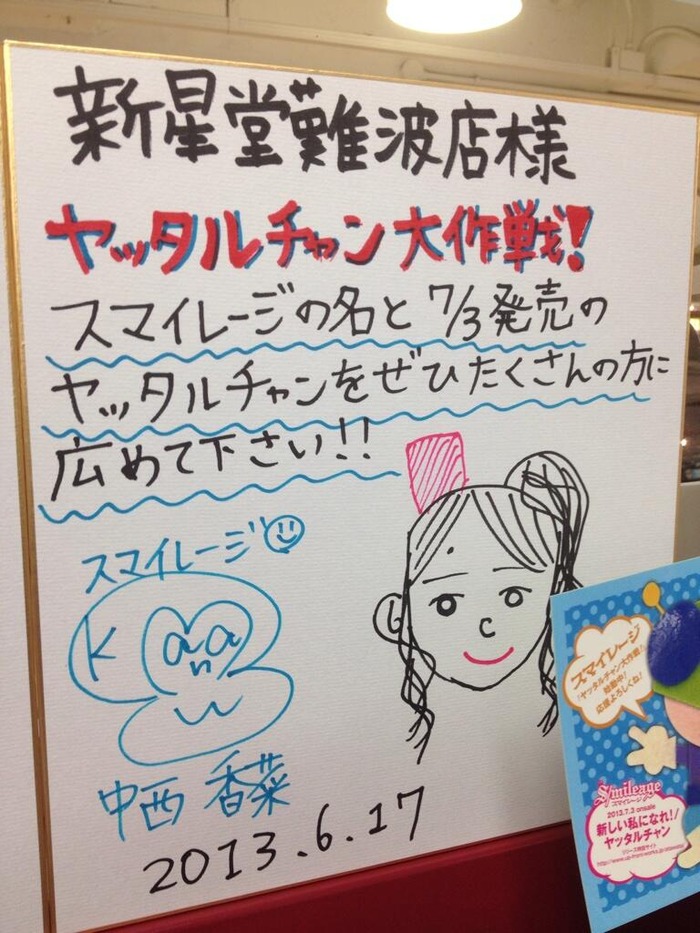 新星堂難波店様
ヤッタルチャン大作戦!
スマイレージの名と7/3発売の
ヤッタルチャンをぜひたくさんの方に
広めて下さい!!
スマイレージ
Kanana
中西 香菜
2013.6.17
スマイレージ
「ヤッタルチャン大作戦!」
始動中!
応援よろしくね!
S/mileage
スマイレージ
2013.7.3 onsale
新しい私になれ!/
ヤッタルチャン